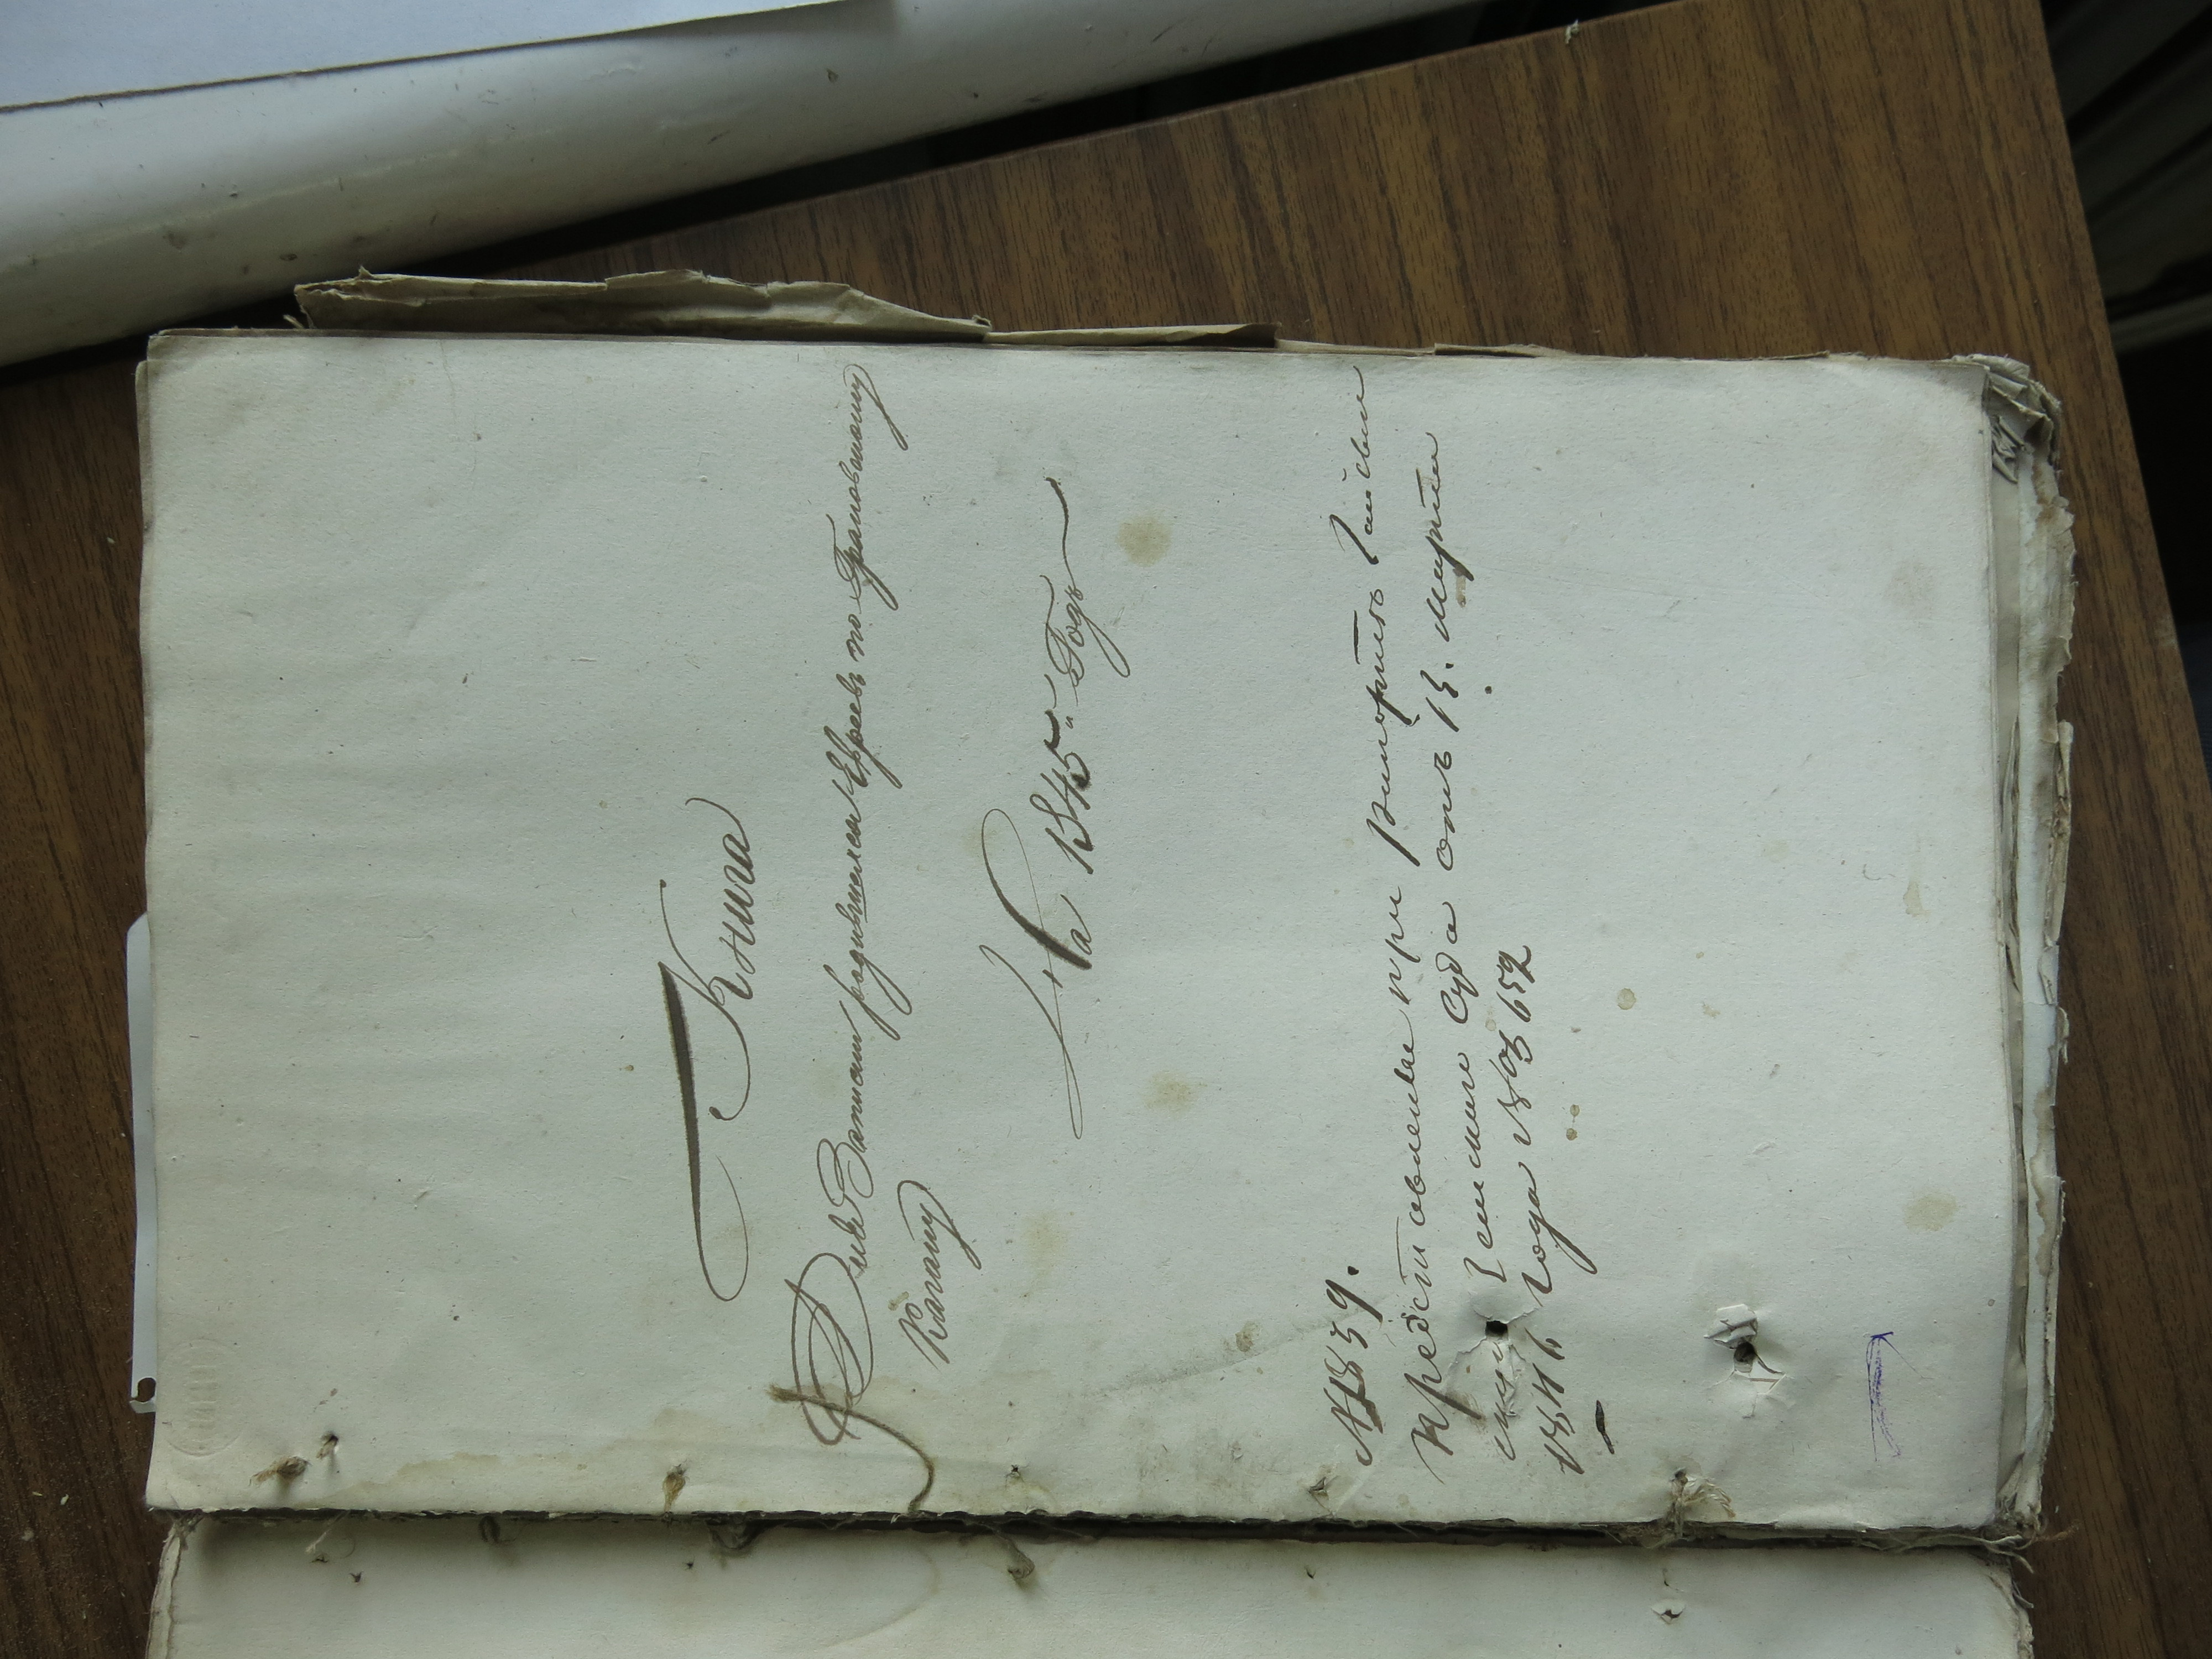 Книга
Для Записки родившихся Евреевъ по Грановскому
Кагалу
На 1845й Годъ
№ 839.
Представлена при рапортѣ Гайсин
скаго Земскаго Суда отъ 13. марта
1846 года № 3652